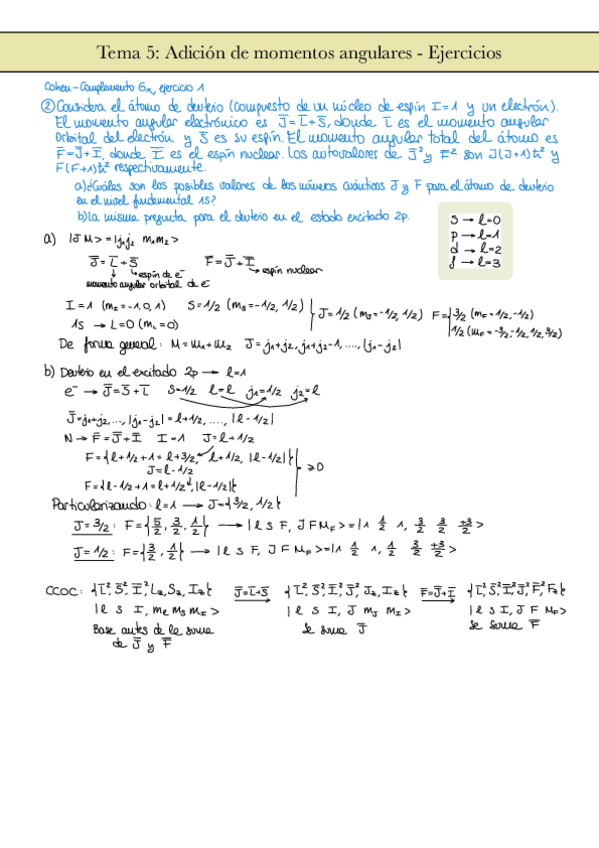 Tema 5: Adición de momentos angulares - Ejercicios
Cohen-Complemento Gx, ejercicio 1
② Considera el átomo de deuterio (compuesto de un núcleo de espín I=1 y un electrón).
El momento angular electrónico es J̄=L̄+S̄, donde L̄ es el momento angular
orbital del electrón y S̄ es su espín. El momento angular total del átomo es
F̄=J̄+Ī, donde Ī es el espín nuclear. Los autovalores de J̄² y F̄² son J(J+1)ħ² y
F(F+1)ħ² respectivamente.
a) ¿Cuáles son los posibles valores de los números cuánticos J y F para el átomo de deuterio
en el nivel fundamental 1s?
b) La misma pregunta para el deuterio en el estado excitado 2p.
S → l=0
p → l=1
d → l=2
f → l=3
a) |J M> = |j₁j₂ m₁m₂>
J̄=L̄+S̄ F̄=J̄+Ī
espín de e⁻ espín nuclear
momento angular orbital de e⁻
I=1 (m_I=-1,0,1) S=1/2 (m_S=-1/2,1/2) } J=1/2 (m_J=-1/2,1/2) F={3/2 (m_F=1/2,-1/2)
1S → L=0 (m_L=0) 1/2 (m_F=-3/2,-1/2,1/2,3/2)
De forma general: M=m₁+m₂ J=j₁+j₂, j₁+j₂-1, ...., |j₁-j₂|
b) Deuterio en el excitado 2p → l=1
e⁻ → J̄=S̄+L̄ S=1/2 l=l j₁=1/2 j₂=l
J̄=j₁+j₂, ..., |j₁-j₂| = l+1/2, ...., |l-1/2|
N → F̄=J̄+Ī I=1 J=l+1/2
F={l+1/2+1=l+3/2, l+1/2, |l-1/2|}
J=l-1/2
≥0
F={l-1/2+1=l+1/2, |l-1/2|}
Particularizando: l=1 → J={3/2, 1/2}
J=3/2: F={5/2, 3/2, 1/2} → |l s F, J F M_F>=|1 1/2 1, 3/2 3/2 ±3/2>
J=1/2: F={3/2, 1/2} → |l s F, J F M_F>=|1 1/2 1, 1/2 3/2 ±3/2>
CCOC: {L̄², S̄², Ī², L_z, S_z, I_z} J̄=L̄+S̄ → {L̄², S̄², Ī², J̄², J_z, I_z} F̄=J̄+Ī → {L̄², S̄², Ī², J̄², F̄², F_z}
|l s I, m_l m_s m_I> |l s I, J m_J m_I> |l s I, J F M_F>
Base antes de la suma se suma J̄ se suma F̄
de J̄ y F̄